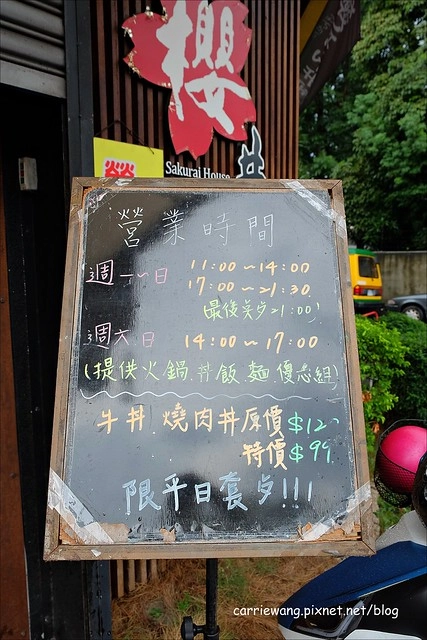 櫻
營
Sakurai House
營業時間
週一~日 11:00~14:00
17:00~21:30
最後點歺21:00
週六日 14:00~17:00
(提供火鍋.丼飯.麵.優惠組)
牛丼.燒肉丼原價$120
特價$99
限平日套歺!!!
carriewang.pixnet.net/blog